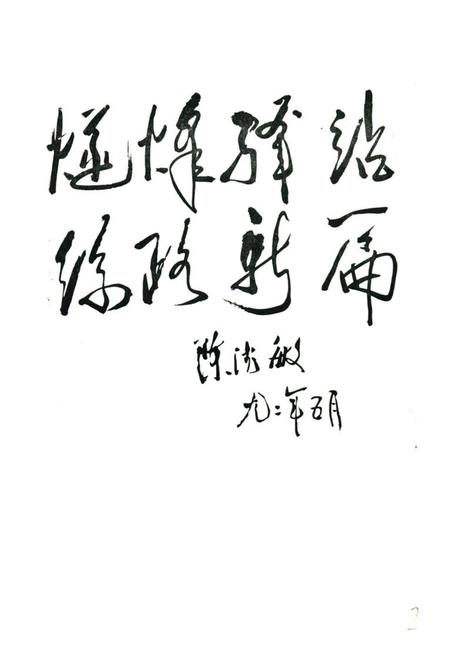 烽驿站
丝路新篇
陈 敏
九二年五月
2